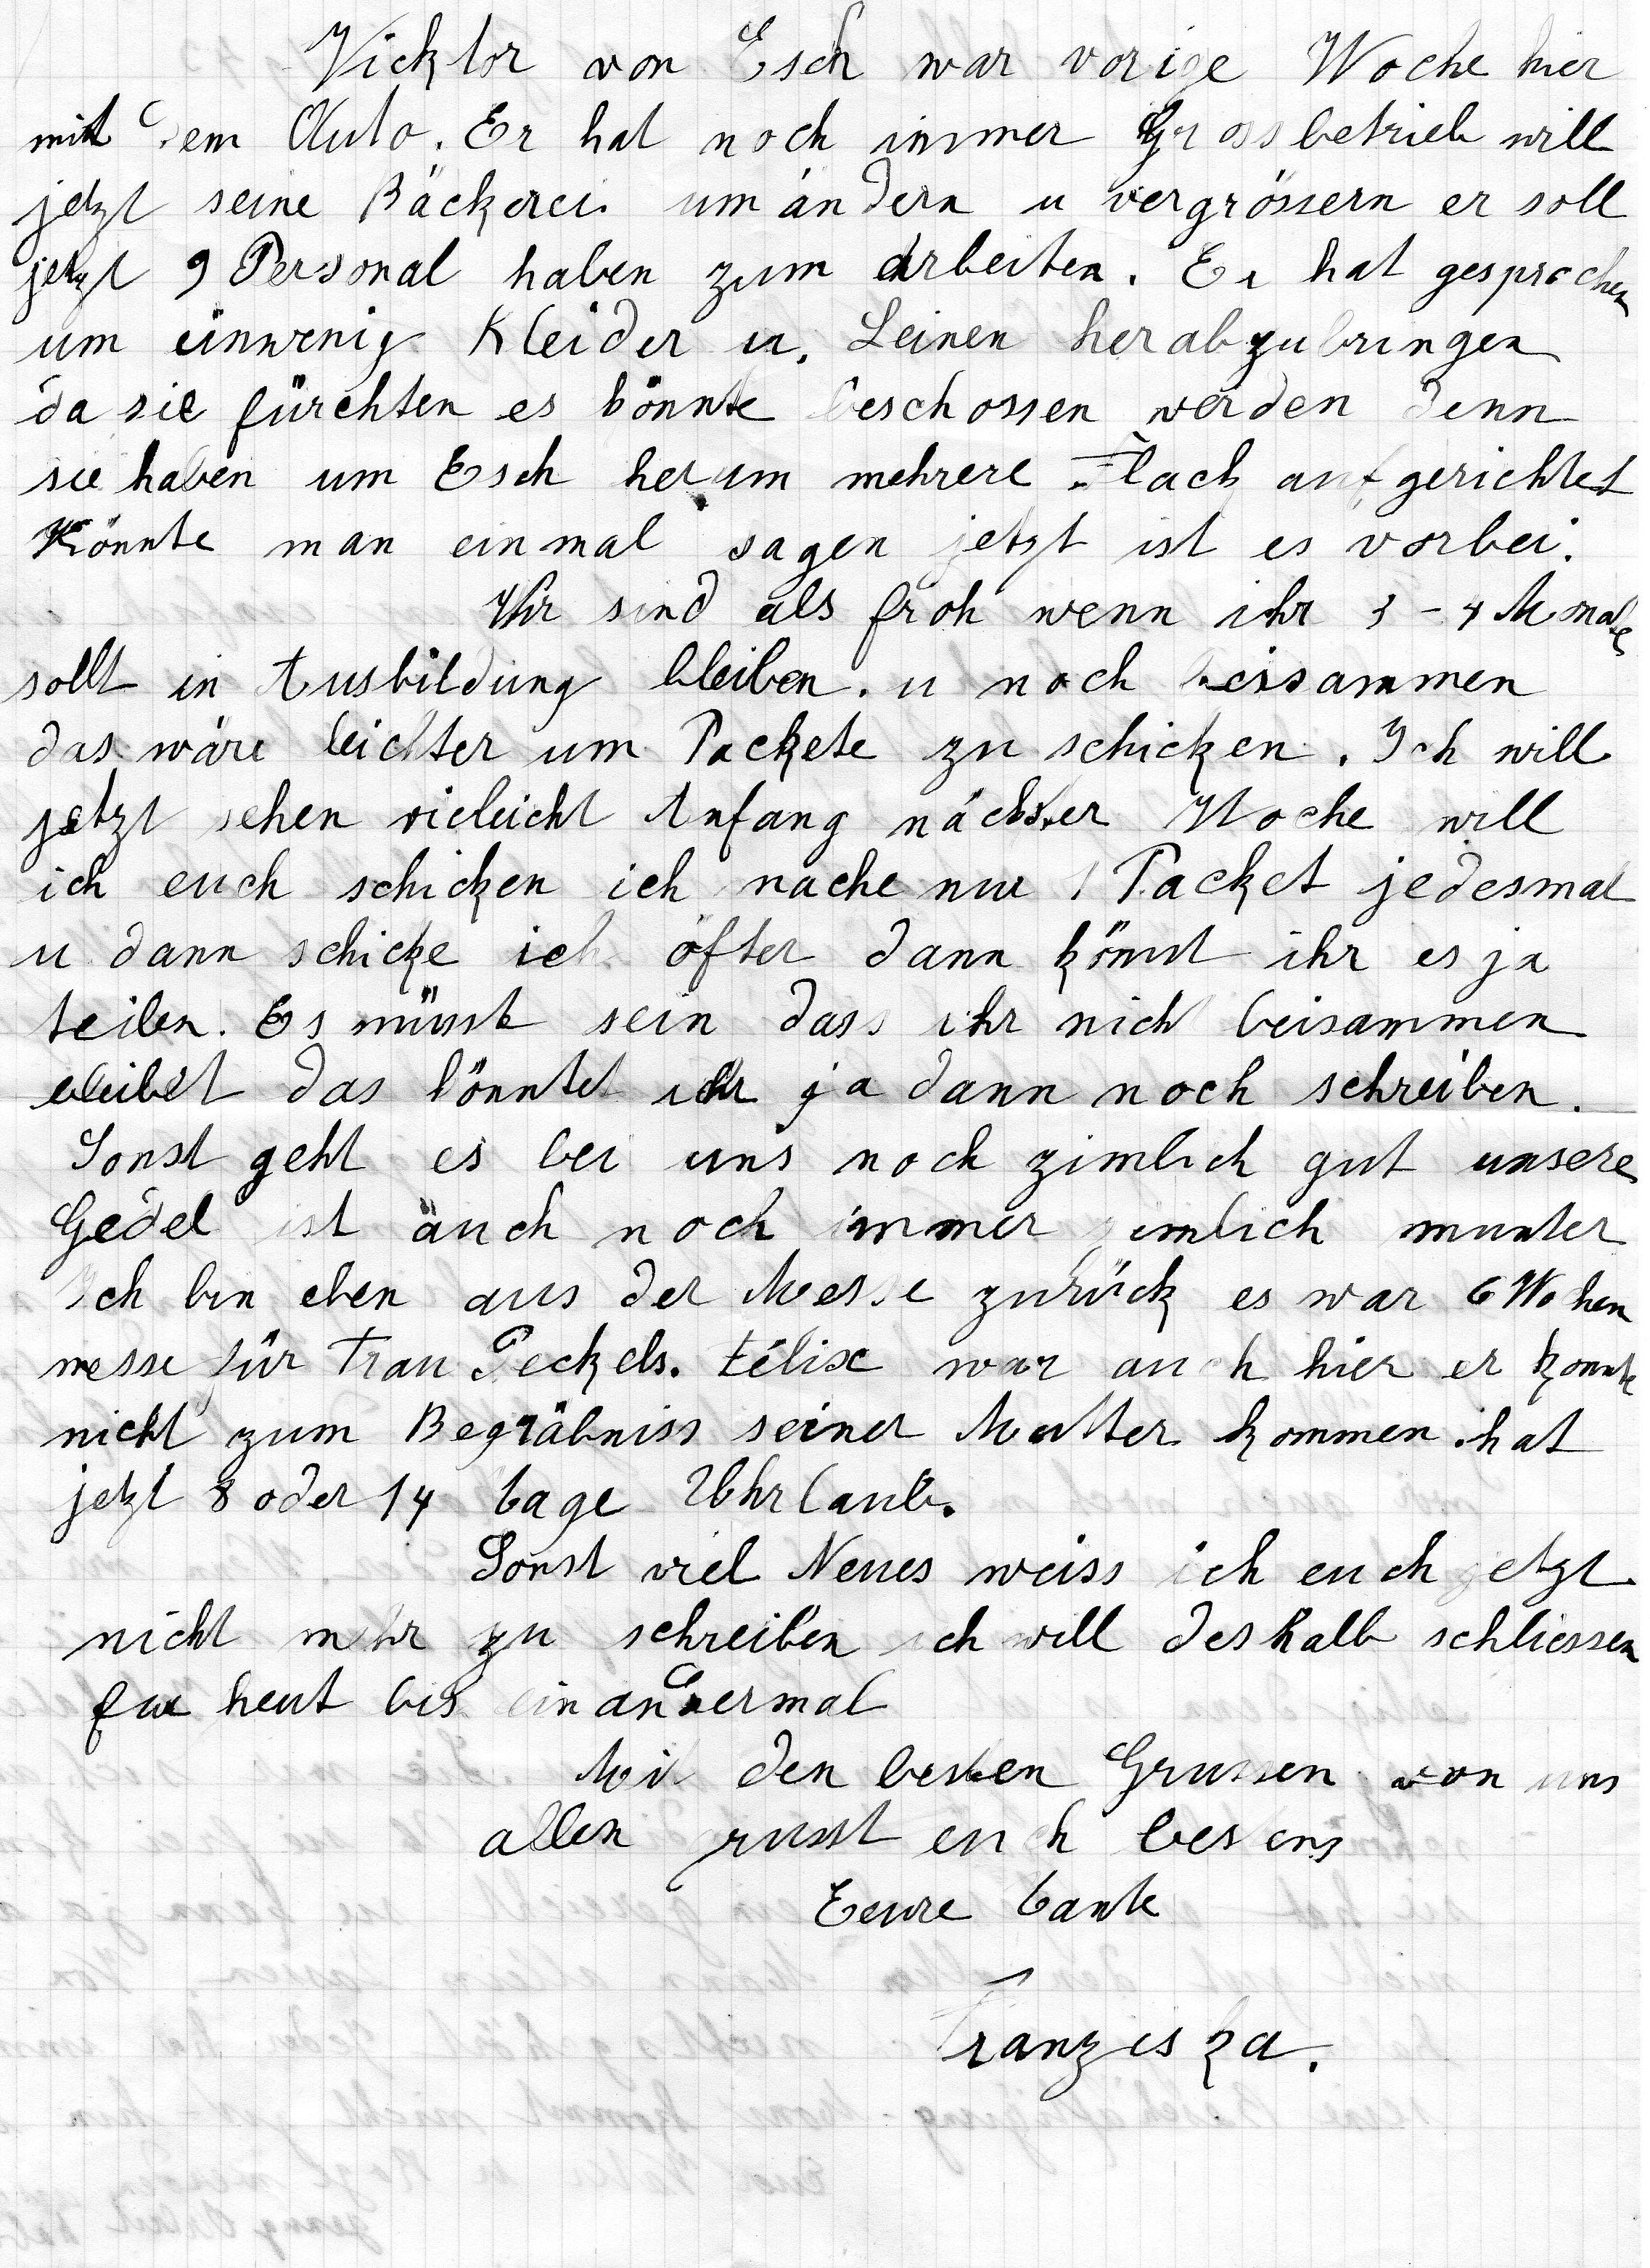 Vicktor von Esch war vorige Woche hier
mit dem Auto. Er hat noch immer Grossbetrieb will
jetzt seine Bäckerei umändern u vergrössern er soll
jetzt 9 Personal haben zum arbeiten. Er hat gesprochen
um einwenig Kleider u. Leinen herabzubringen
da sie fürchten es könnte beschossen werden denn
sie haben um Esch herum mehrere Flack aufgerichtet
Könnte man einmal sagen jetzt ist es vorbei.
Wir sind als froh wenn ihr 3 - 4 Monate
sollt in Ausbildung bleiben. u noch beisammen
das wäre leichter um Packete zu schicken. Ich will
jetzt sehen vieleicht Anfang nächster Woche will
ich euch schicken ich mache nur 1 Packet jedesmal
u dann schicke ich öfter dann könnt ihr es ja
teilen. Es müsst sein dass ihr nicht beisammen
bleibet das könntet ihr ja dann noch schreiben.
Sonst geht es bei uns noch zimlich gut unsere
Gedel ist auch noch immer zimlich munter
Ich bin eben aus der Messe zurück es war 6 Wochen
messe für Frau Peckels. Félix war auch hier er konnte
nicht zum Begräbniss seiner Mutter kommen. hat
jetzt 8 oder 14 tage Uhrlaub.
Sonst viel Neues weiss ich euch jetzt
nicht mehr zu schreiben ich will deshalb schliessen
fur heut bis einandermal
Mit den besten Grussen von uns
allen grusst euch bestens
Eeure tante
Franziska.